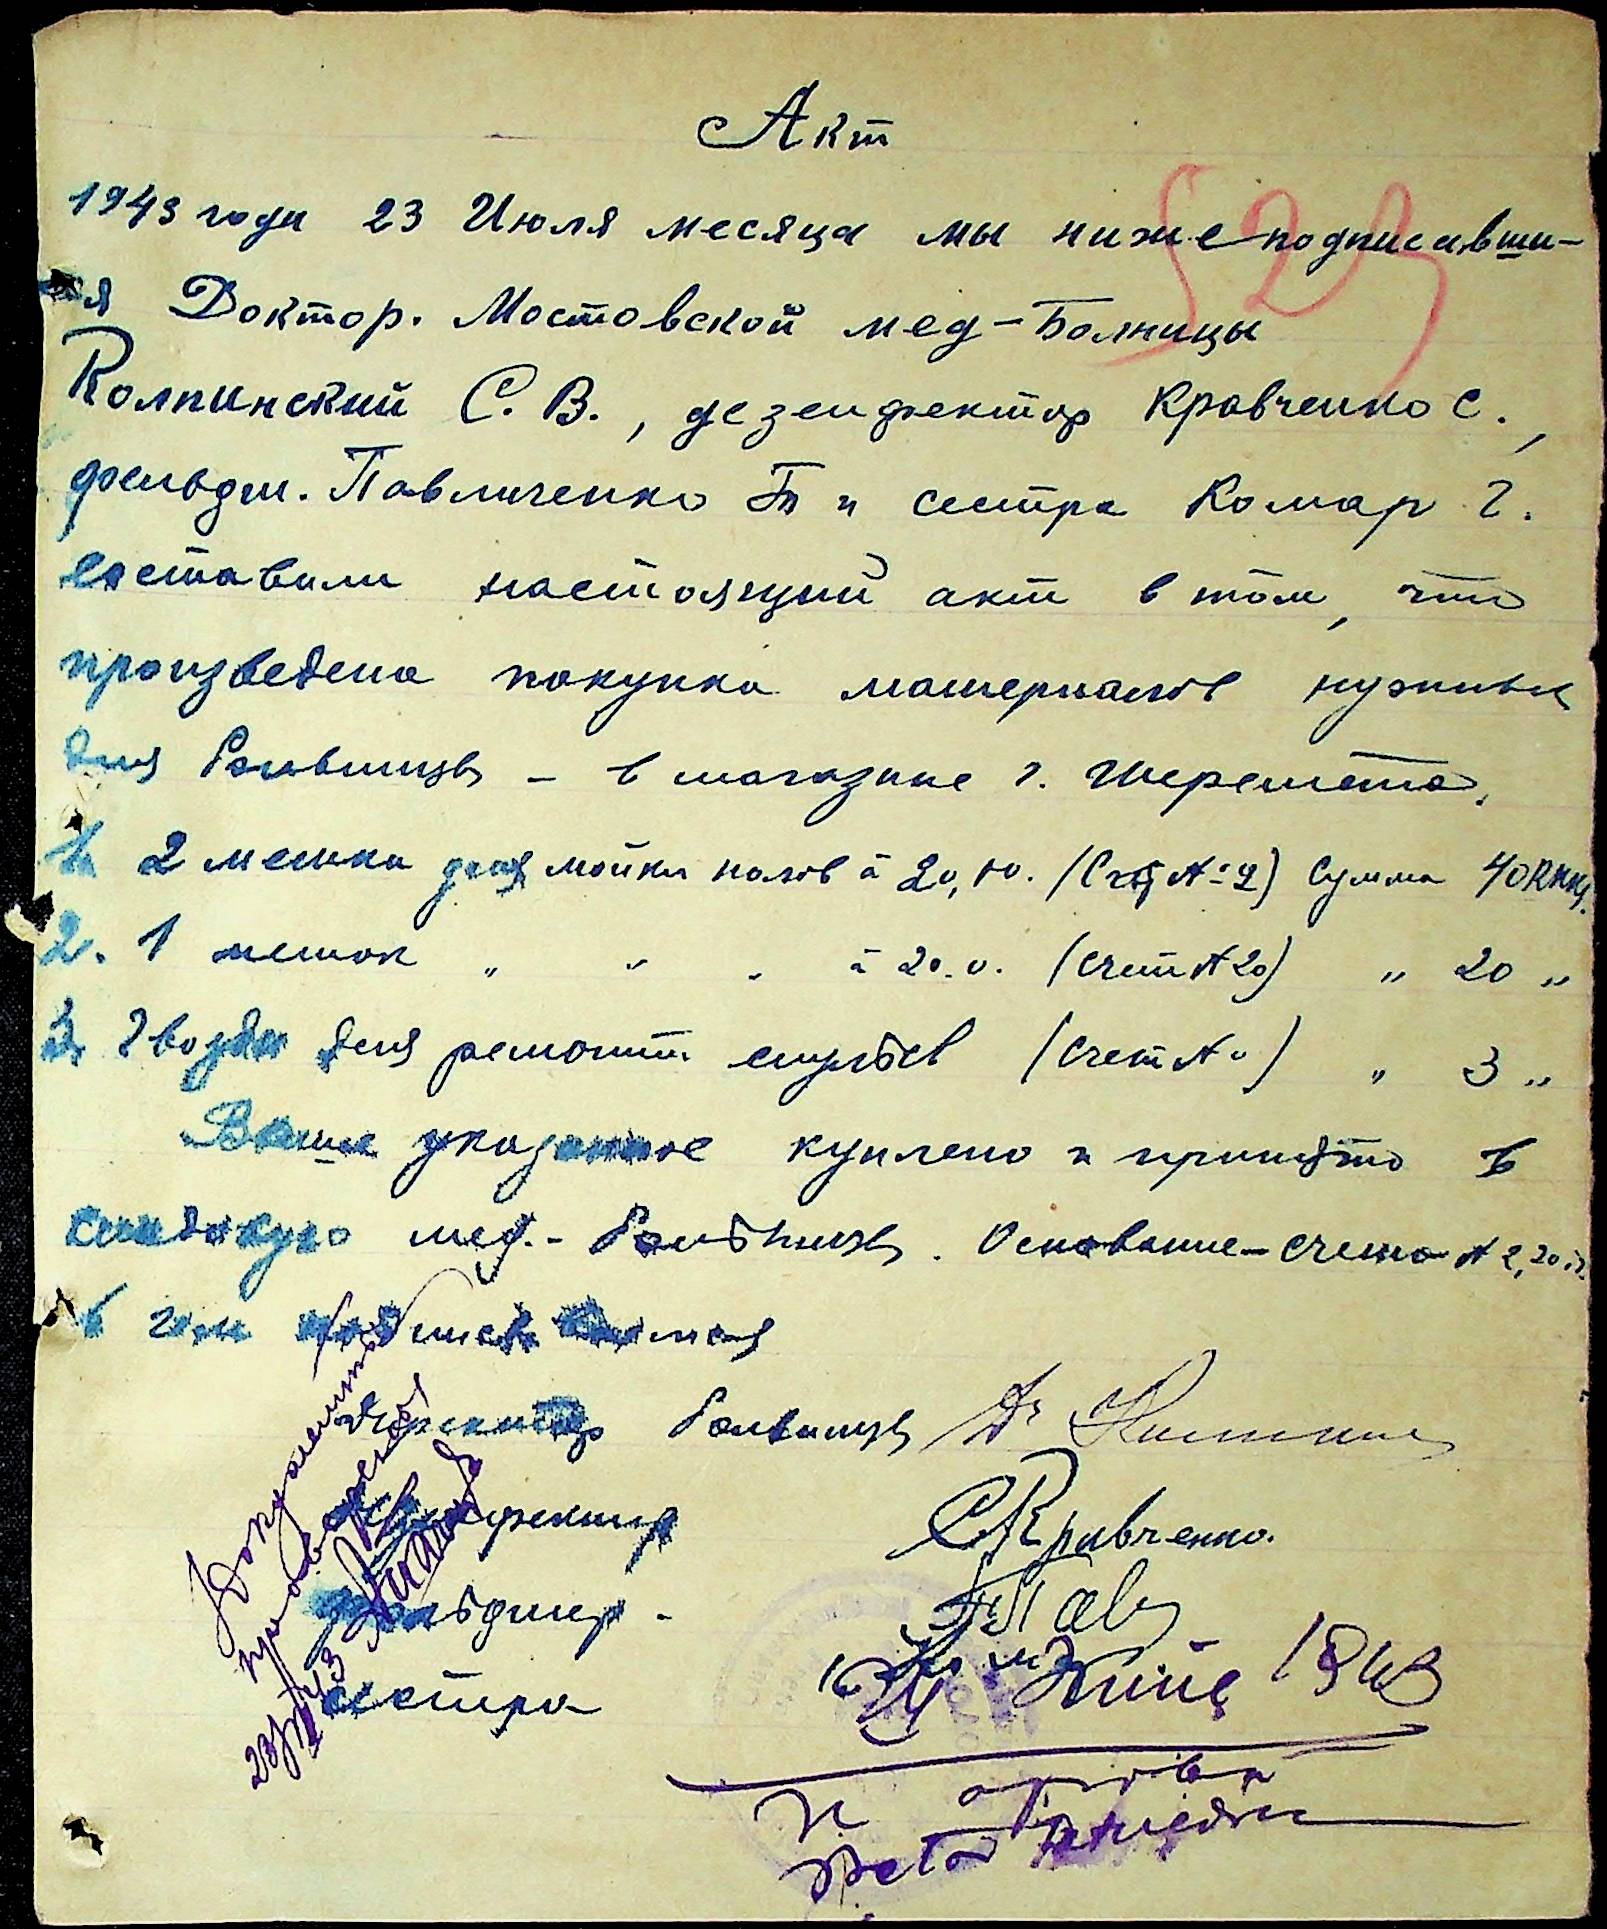 Акт
1943 года 23 Июля месяца мы ниже подписавши-
я Доктор. Мостовской мед-Болницы
Колпинский С. В., дезенфектор Кравченко С.,
фельдш. Павличенко и сестра Комар Г.
составили настоящий акт в том, что
произведена покупка материалов нужных
для больницы - в магазине г. Шеремета.
2 мешка для мойки полов à 20,10. (Счет № 2) Сумма 40 Крц.
2. 1 мешок " " " à 20.0. (счет № 20) " 20 "
3. Гвозди для ремонта стульев (счет №) " 3 "
Выше указанное куплено и принято в
кладовую мед.-больницы. Основание-счета № 2, 20
в чем подписываемся
Директор больницы Dr
дезенфектор СКравченко.
фельдшер - Пав
сестра
Документы
проверены
23/VII 43
1943